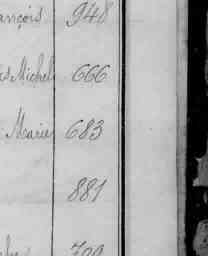 ançois 948
Michel 666
Marie 683
881